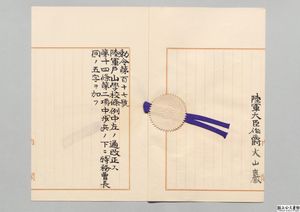 陸軍大臣伯爵大山巌
勅令第百十七号
陸軍戸山学校条例中左ノ通改正ス
第十四条第二項中歩兵ノ下ニ特務曹長
ノ五字ヲ加フ
国立公文書館